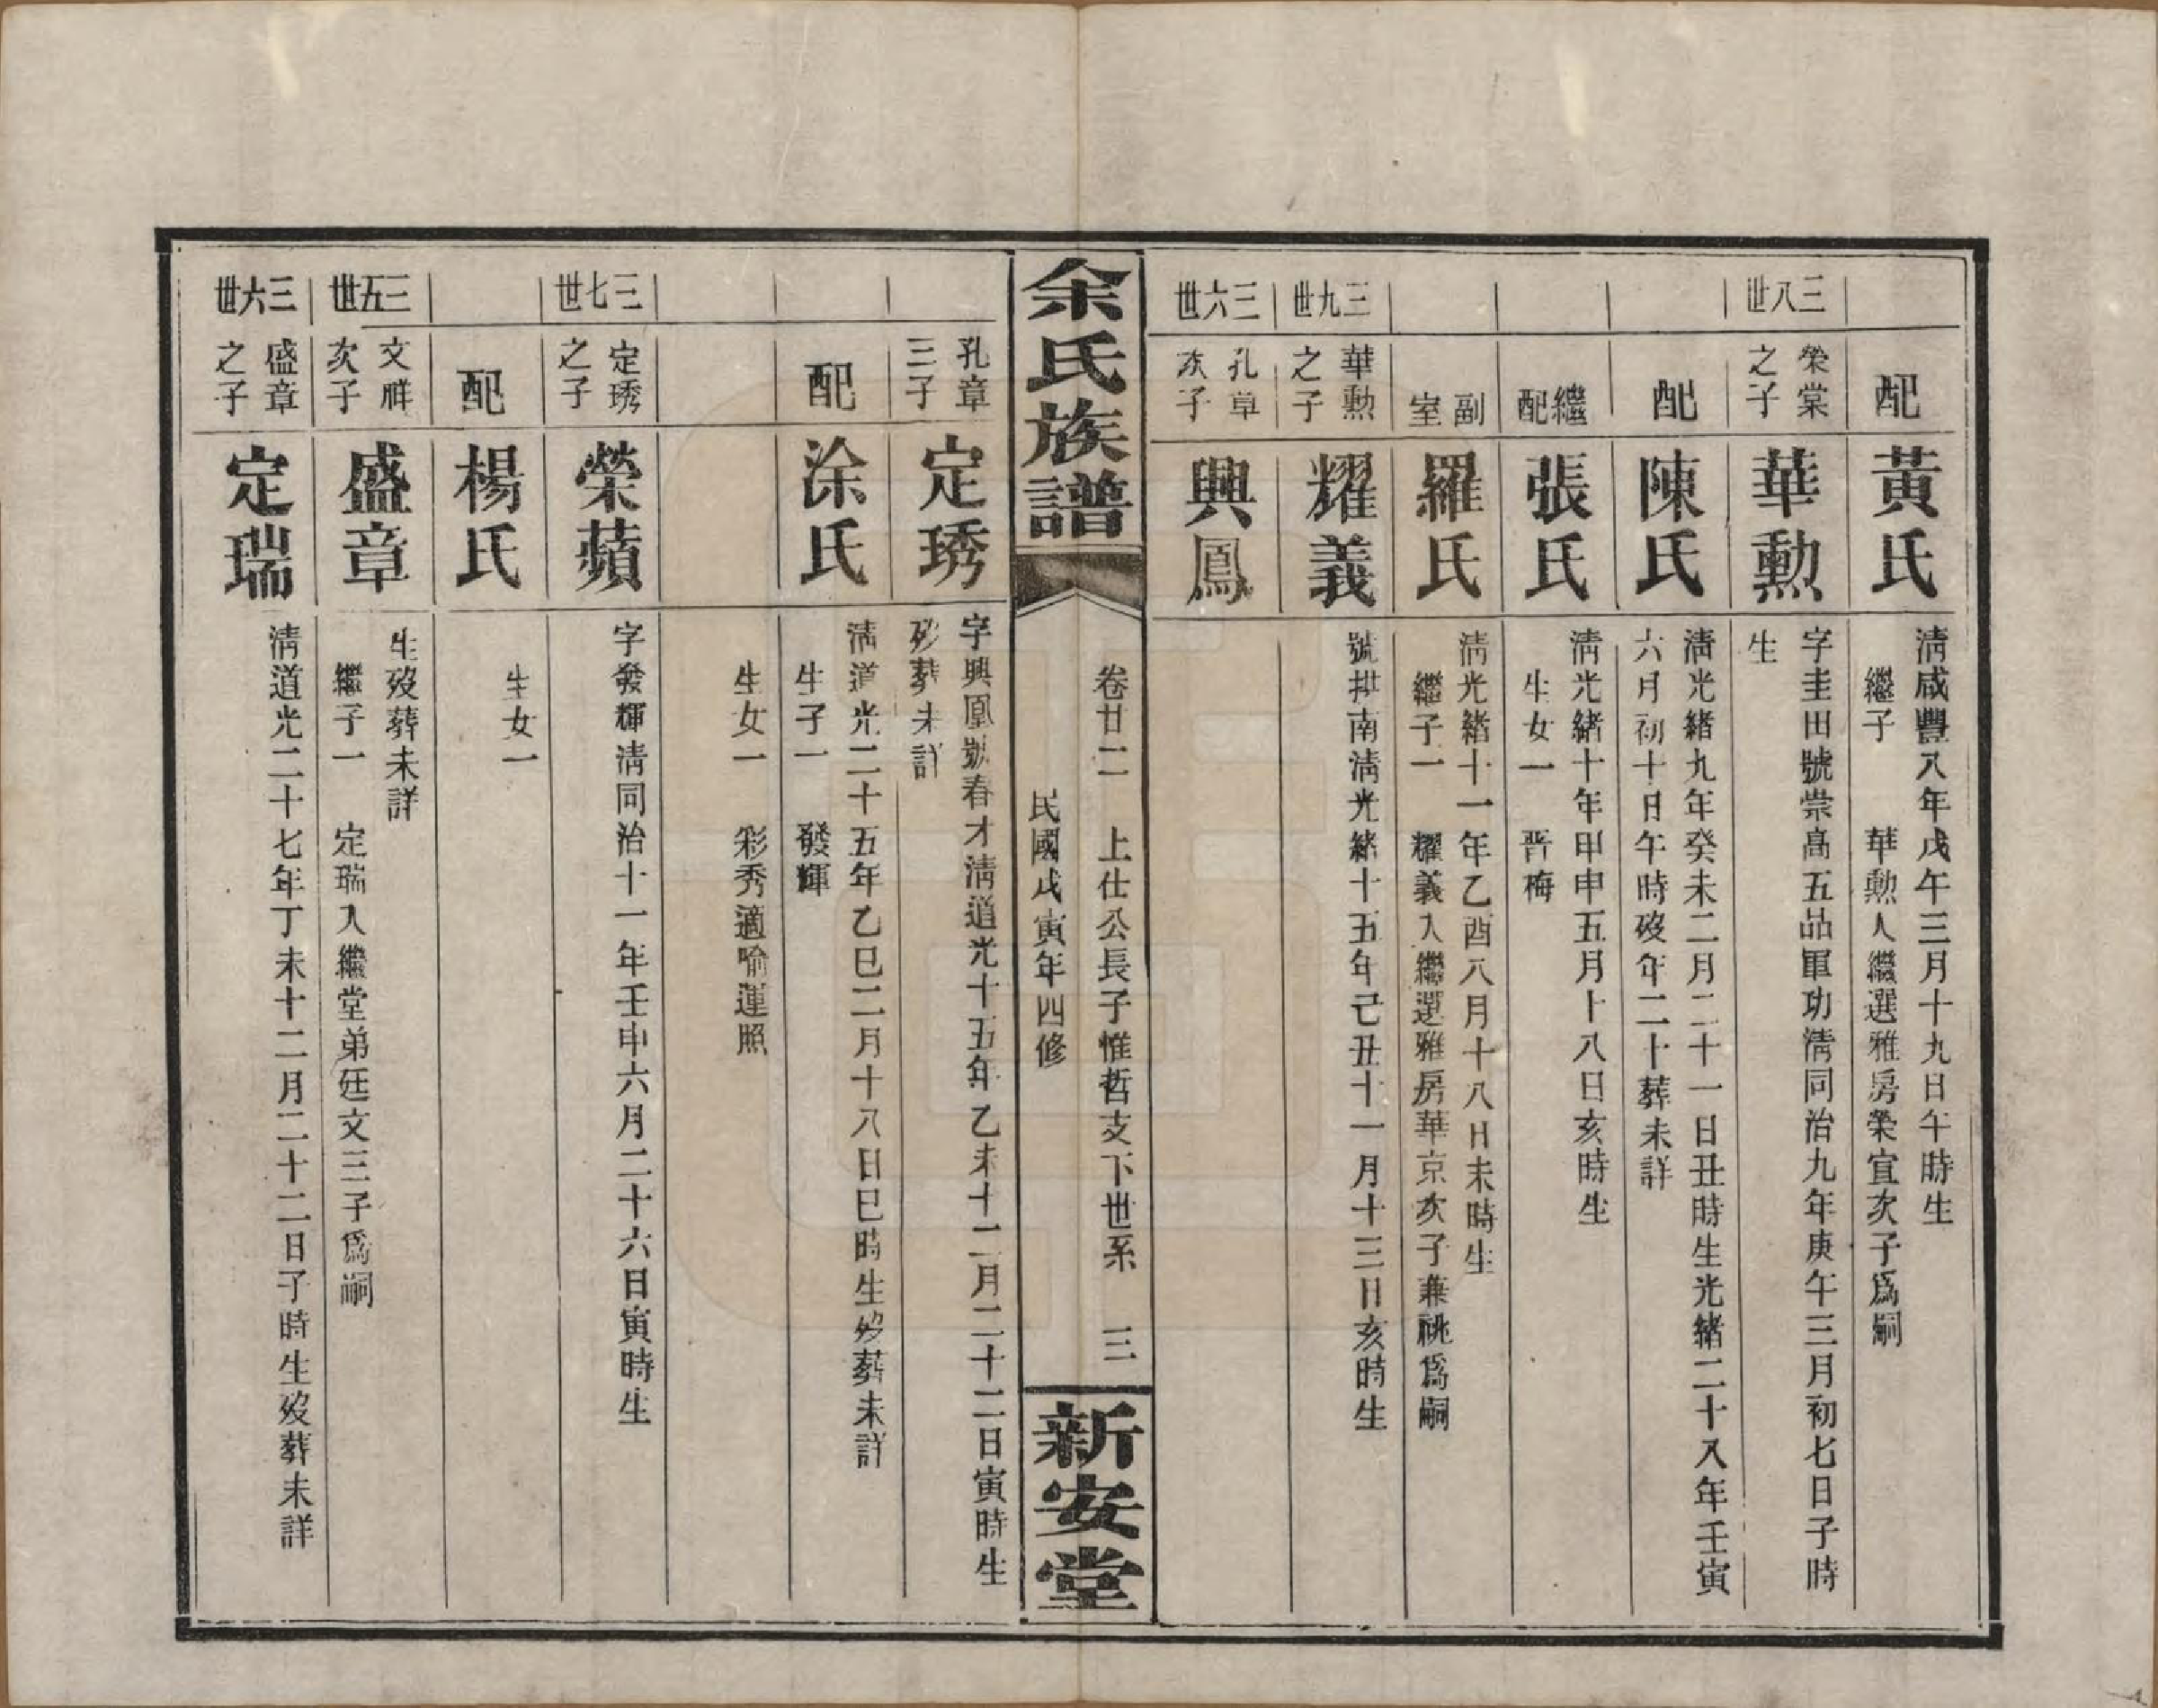 配
黃氏
清咸豐八年戊午三月十九日午時生
繼子　華勲入繼選雅房榮宜次子爲嗣
三八世
榮棠
之子
華勲
字圭田號崇高五品軍功清同治九年庚午三月初七日子時
生
配
陳氏
清光緒九年癸未二月二十一日丑時生光緒二十八年壬寅
六月初十日午時歿年二十葬未詳
繼配
張氏
清光緒十年甲申五月十八日亥時生
生女一　晋梅
副室
羅氏
清光緒十一年乙酉八月十八日未時生
繼子一　耀義入繼選雅房華京次子兼祧爲嗣
三九世
華勲
之子
耀義
號拱南清光緒十五年己丑十一月十三日亥時生
三六世
孔章
次子
興鳳
余氏族譜
卷廿二　上仕公長子惟哲支下世系　三
民國戊寅年四修
新安堂
孔章
三子
定琇
字興凰號春才清道光十五年乙未十二月二十二日寅時生
歿葬未詳
配
涂氏
清道光二十五年乙巳二月十八日巳時生歿葬未詳
生子一　發輝
生女一　彩秀適喻運照
三七世
定琇
之子
榮蘋
字發輝清同治十一年壬申六月二十六日寅時生
配
楊氏
生女一
三五世
文祥
次子
盛章
生歿葬未詳
繼子一　定瑞入繼堂弟廷文三子爲嗣
三六世
盛章
之子
定瑞
清道光二十七年丁未十二月二十二日子時生歿葬未詳